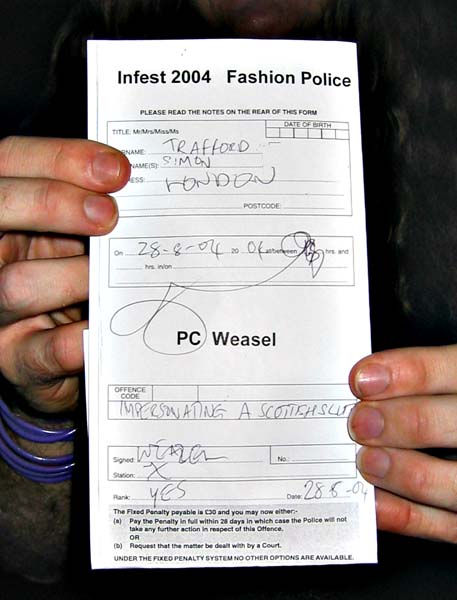 Infest 2004 Fashion Police
PLEASE READ THE NOTES ON THE REAR OF THIS FORM
TITLE: Mr/Mrs/Miss/Ms
DATE OF BIRTH
TRAFFORD
NAME(S): SIMON
LONDON
POSTCODE:
On 28-8-04 20 04 at/between hrs. and
hrs. in/on
PC Weasel
OFFENCE CODE
IMPERSONATING A SCOTTISH SLUT
Signed: WEAZEL No.:
Station: X
Rank: YES Date: 28-8-04
The Fixed Penalty payable is £30 and you may now either:-
(a) Pay the Penalty in full within 28 days in which case the Police will
not take any further action in respect of this Offence.
OR
(b) Request that the matter be dealt with by a Court.
UNDER THE FIXED PENALTY SYSTEM NO OTHER OPTIONS ARE AVAILABLE.